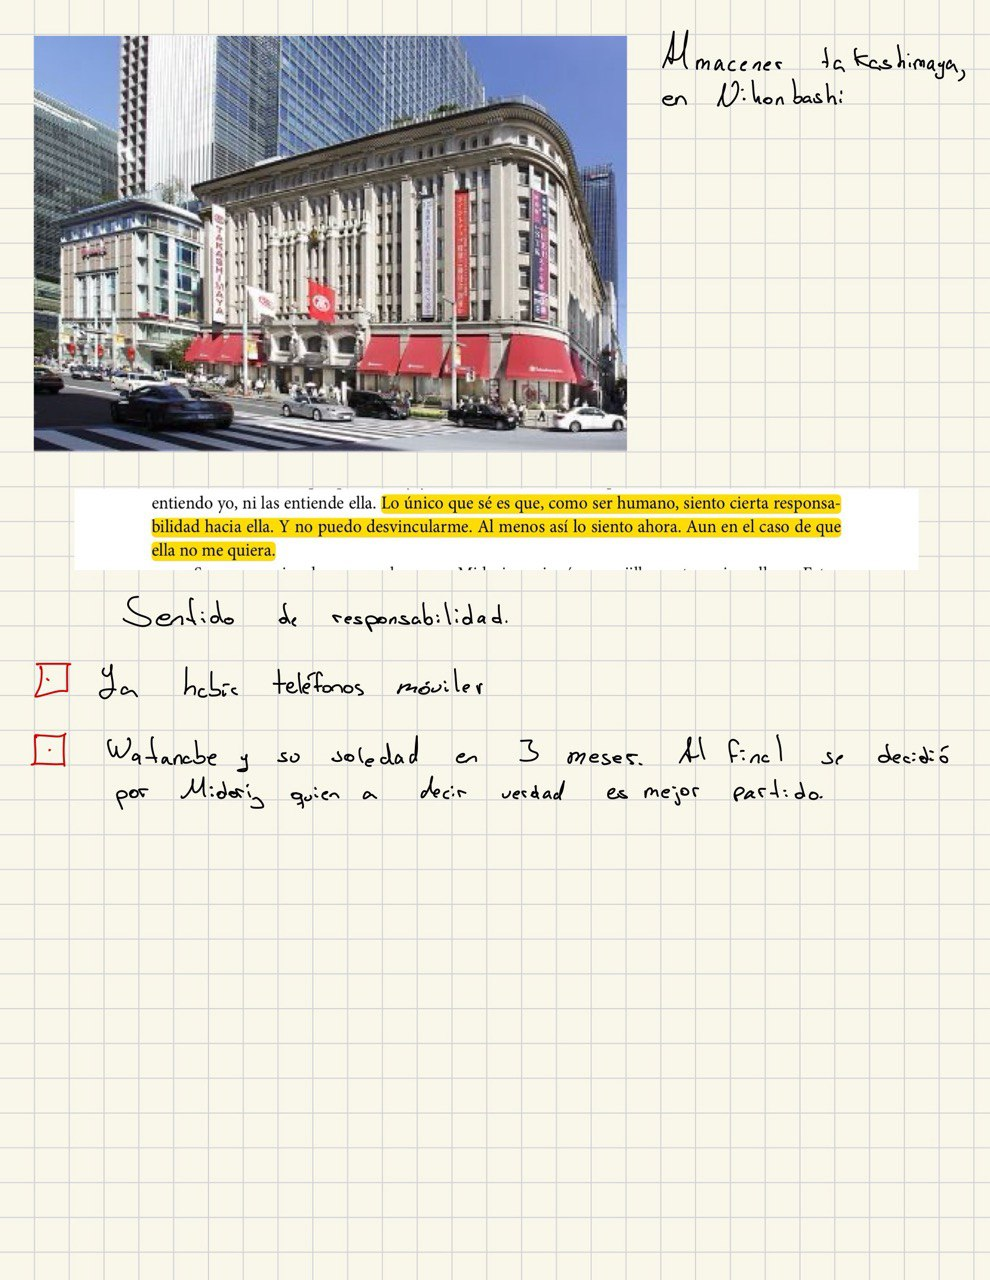 Almacenes takashimaya,
en Nihonbashi
TAKASHIMAYA
entiendo yo, ni las entiende ella. Lo único que sé es que, como ser humano, siento cierta responsa-
bilidad hacia ella. Y no puedo desvincularme. Al menos así lo siento ahora. Aun en el caso de que
ella no me quiera.
Sentido de responsabilidad.
Ya había teléfonos móviles
Watanabe y su soledad en 3 meses. Al final se decidió
por Midori, quien a decir verdad es mejor partido.